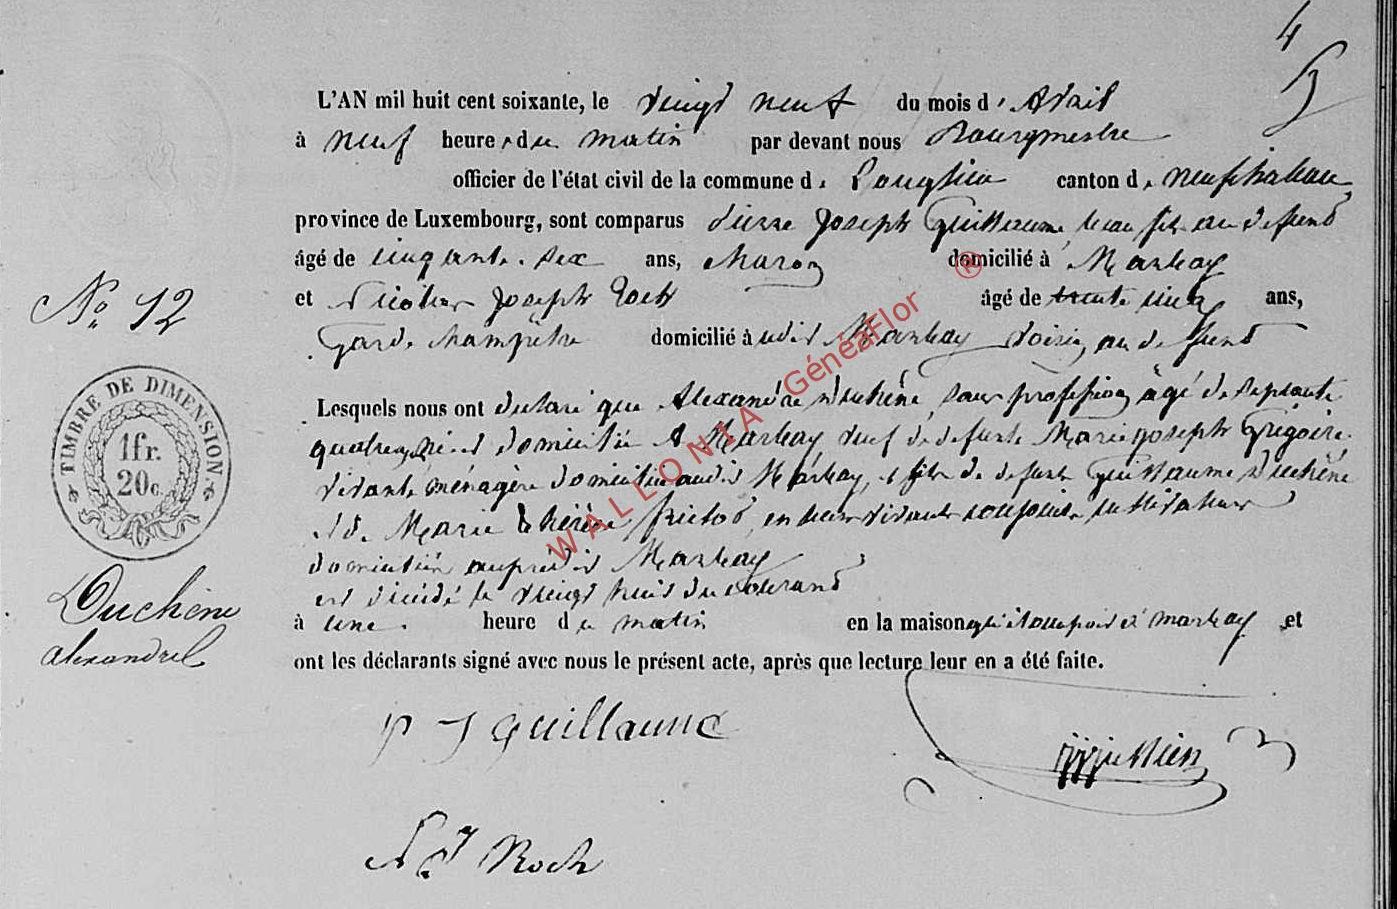 4
5
L'AN mil huit cent soixante, le vingt neuf du mois d'Avril
à neuf heures du matin par devant nous Bourgmestre
officier de l'état civil de la commune de Longlier canton de neufchateau
province de Luxembourg, sont comparus Pierre Joseph Guillaume, beau fils au defunt
âgé de cinquante six ans, Maçon domicilié à Marbay
et Nicolas Joseph Roch âgé de trente cinq ans,
Garde champêtre domicilié à udit Marbay voisin au defunt
Lesquels nous ont déclaré que Alexandre Duchêne, sans profession âgé de septante
quatre domicilié à Marbay veuf de defunte Marie Joseph Grégoire
vivante ménagère domiciliée audit Marbay, et fils de defunts Guillaume Duchêne
et de Marie thérèse en leur vivant conjoints cultivateurs
domiciliés Marbay
est décédé le vingt huit du courant
à une heure du matin en la maison Marbay et
ont les déclarants signé avec nous le présent acte, après que lecture leur en a été faite.
No 12
TIMBRE DE DIMENSION
1fr.
20c.
Duchêne
alexandre
p J guillaume
N J Roch
WALLONIA GénéaFlor ®